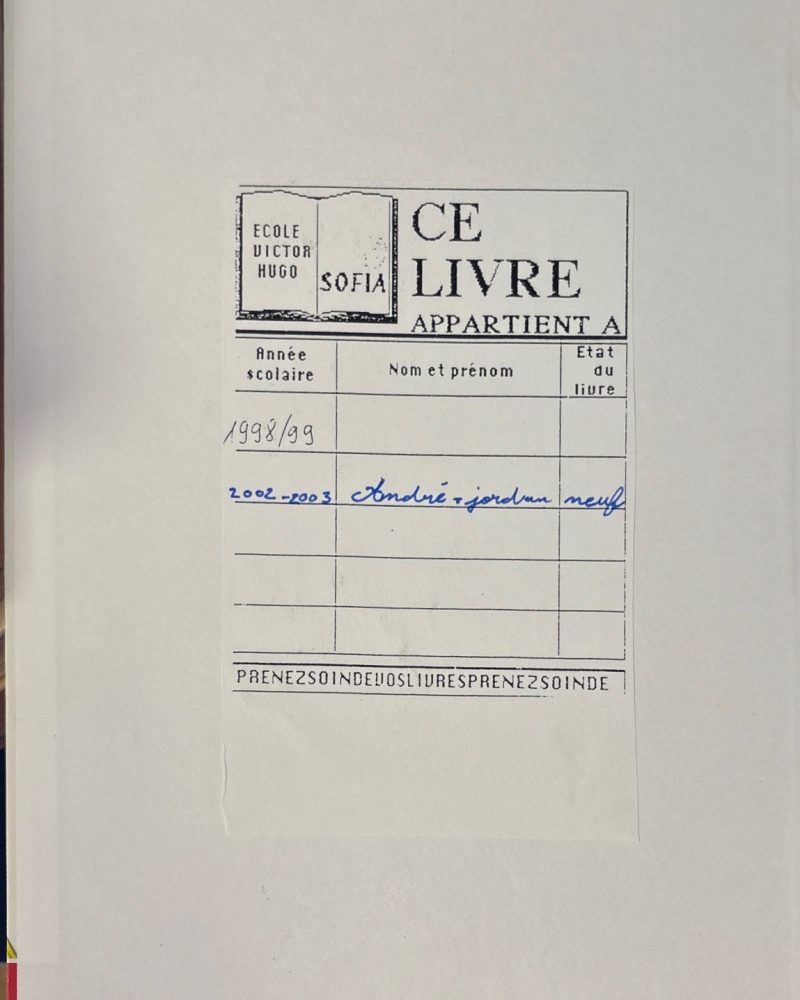 ECOLE
VICTOR
HUGO
SOFIA
CE
LIVRE
APPARTIENT A
Année
scolaire
Nom et prénom
Etat
du
livre
1998/99
2002-2003 André - jordan neuf
PRENEZSOINDEVOSLIVRESPRENEZSOINDE